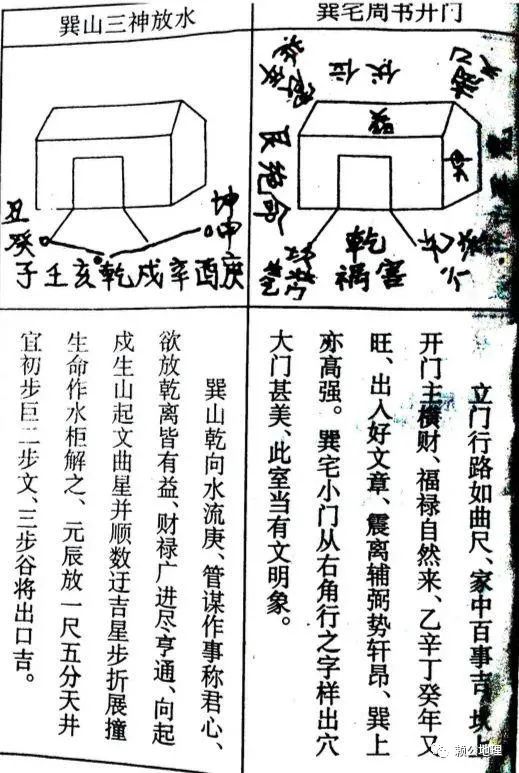 巽宅周书开门
伏位
巽
艮绝命
乾
祸害
立门行路如曲尺、家中百事吉、坎上
开门主横财、福禄自然来、乙辛丁癸年又
旺、出人好文章、震离辅弼势轩昂、巽上
亦高强。巽宅小门从右角行之字样出穴
大门甚美、此室当有文明象。
巽山三神放水
丑
癸
坤
申
子壬亥乾戍辛酉庚
巽山乾向水流庚、管谋作事称君心、
欲放乾离皆有益、财禄广进尽亨通、向起
戍生山起文曲星并顺数迂吉星步折展撞
生命作水柜解之、元辰放一尺五分天井
宜初步巨二步文、三步谷将出口吉。
赖公地理